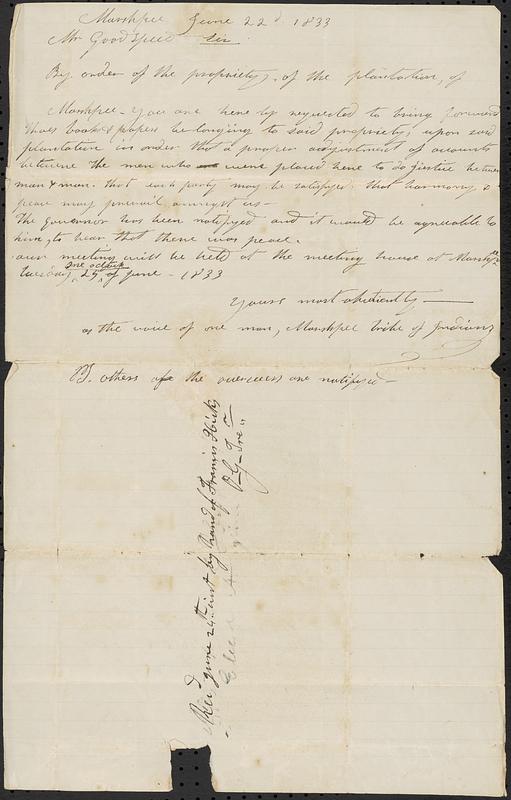 Marshpee June 22d 1833
Mr Goodspeed Sir
By order of the propriety, of the plantation, of
Marshpee - You are here by requested to bring forward
those books & papers belonging to said propriety, upon said
plantation in order that a proper adjustment of accounts
betwene the men who were placed here to do justice between
man & man. that each party may be satisfied that harmony &
peace may prevail amongst us -
The Governor has been notified and it would be agreeable to
him, to hear that there was peace.
our meeting will be held at the meeting house at Marshpee
tuesday, one oclock 25th of June - 1833
Yours most obediently
as the voice of one man, Marshpee tribe of Indians
PS. others of the overseers are notified -
Recd June 24th inst by hand of Francis Hicks
P G Tre